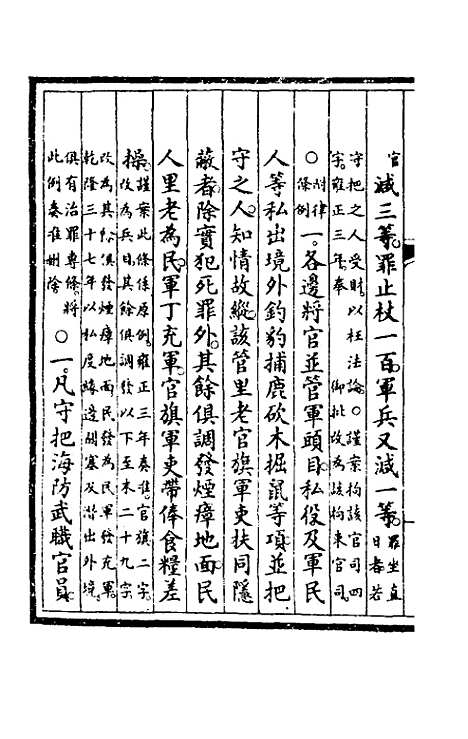 官減三等。罪止杖一百。軍兵又減一等。罪坐直日者若
守把之人受財。以枉法論。○謹案拘該官司四
字。雍正三年。奉 御批改為該拘束官司。
○附律條例一。各邊將官並管軍頭目。私役及軍民
人等私出境外釣豹捕鹿砍木掘鼠等項。並把
守之人。知情故縱。該管里老官旗軍吏扶同隱
蔽者。除實犯死罪外。其餘俱調發煙瘴地面。民
人里老為民。軍丁充軍。官旗軍吏帶俸食糧差
操。謹案此條係原例。雍正三年奏准。官旗二字。
改為兵目。其餘俱調發以下至末二十九字。
改為其餘俱發煙瘴地面。民發為民。軍發充軍。
乾隆三十七年。以私度緣邊關塞及潛出外境。
俱有治罪專條。將
此例奏准刪除 ○一。凡守把海防武職官員。